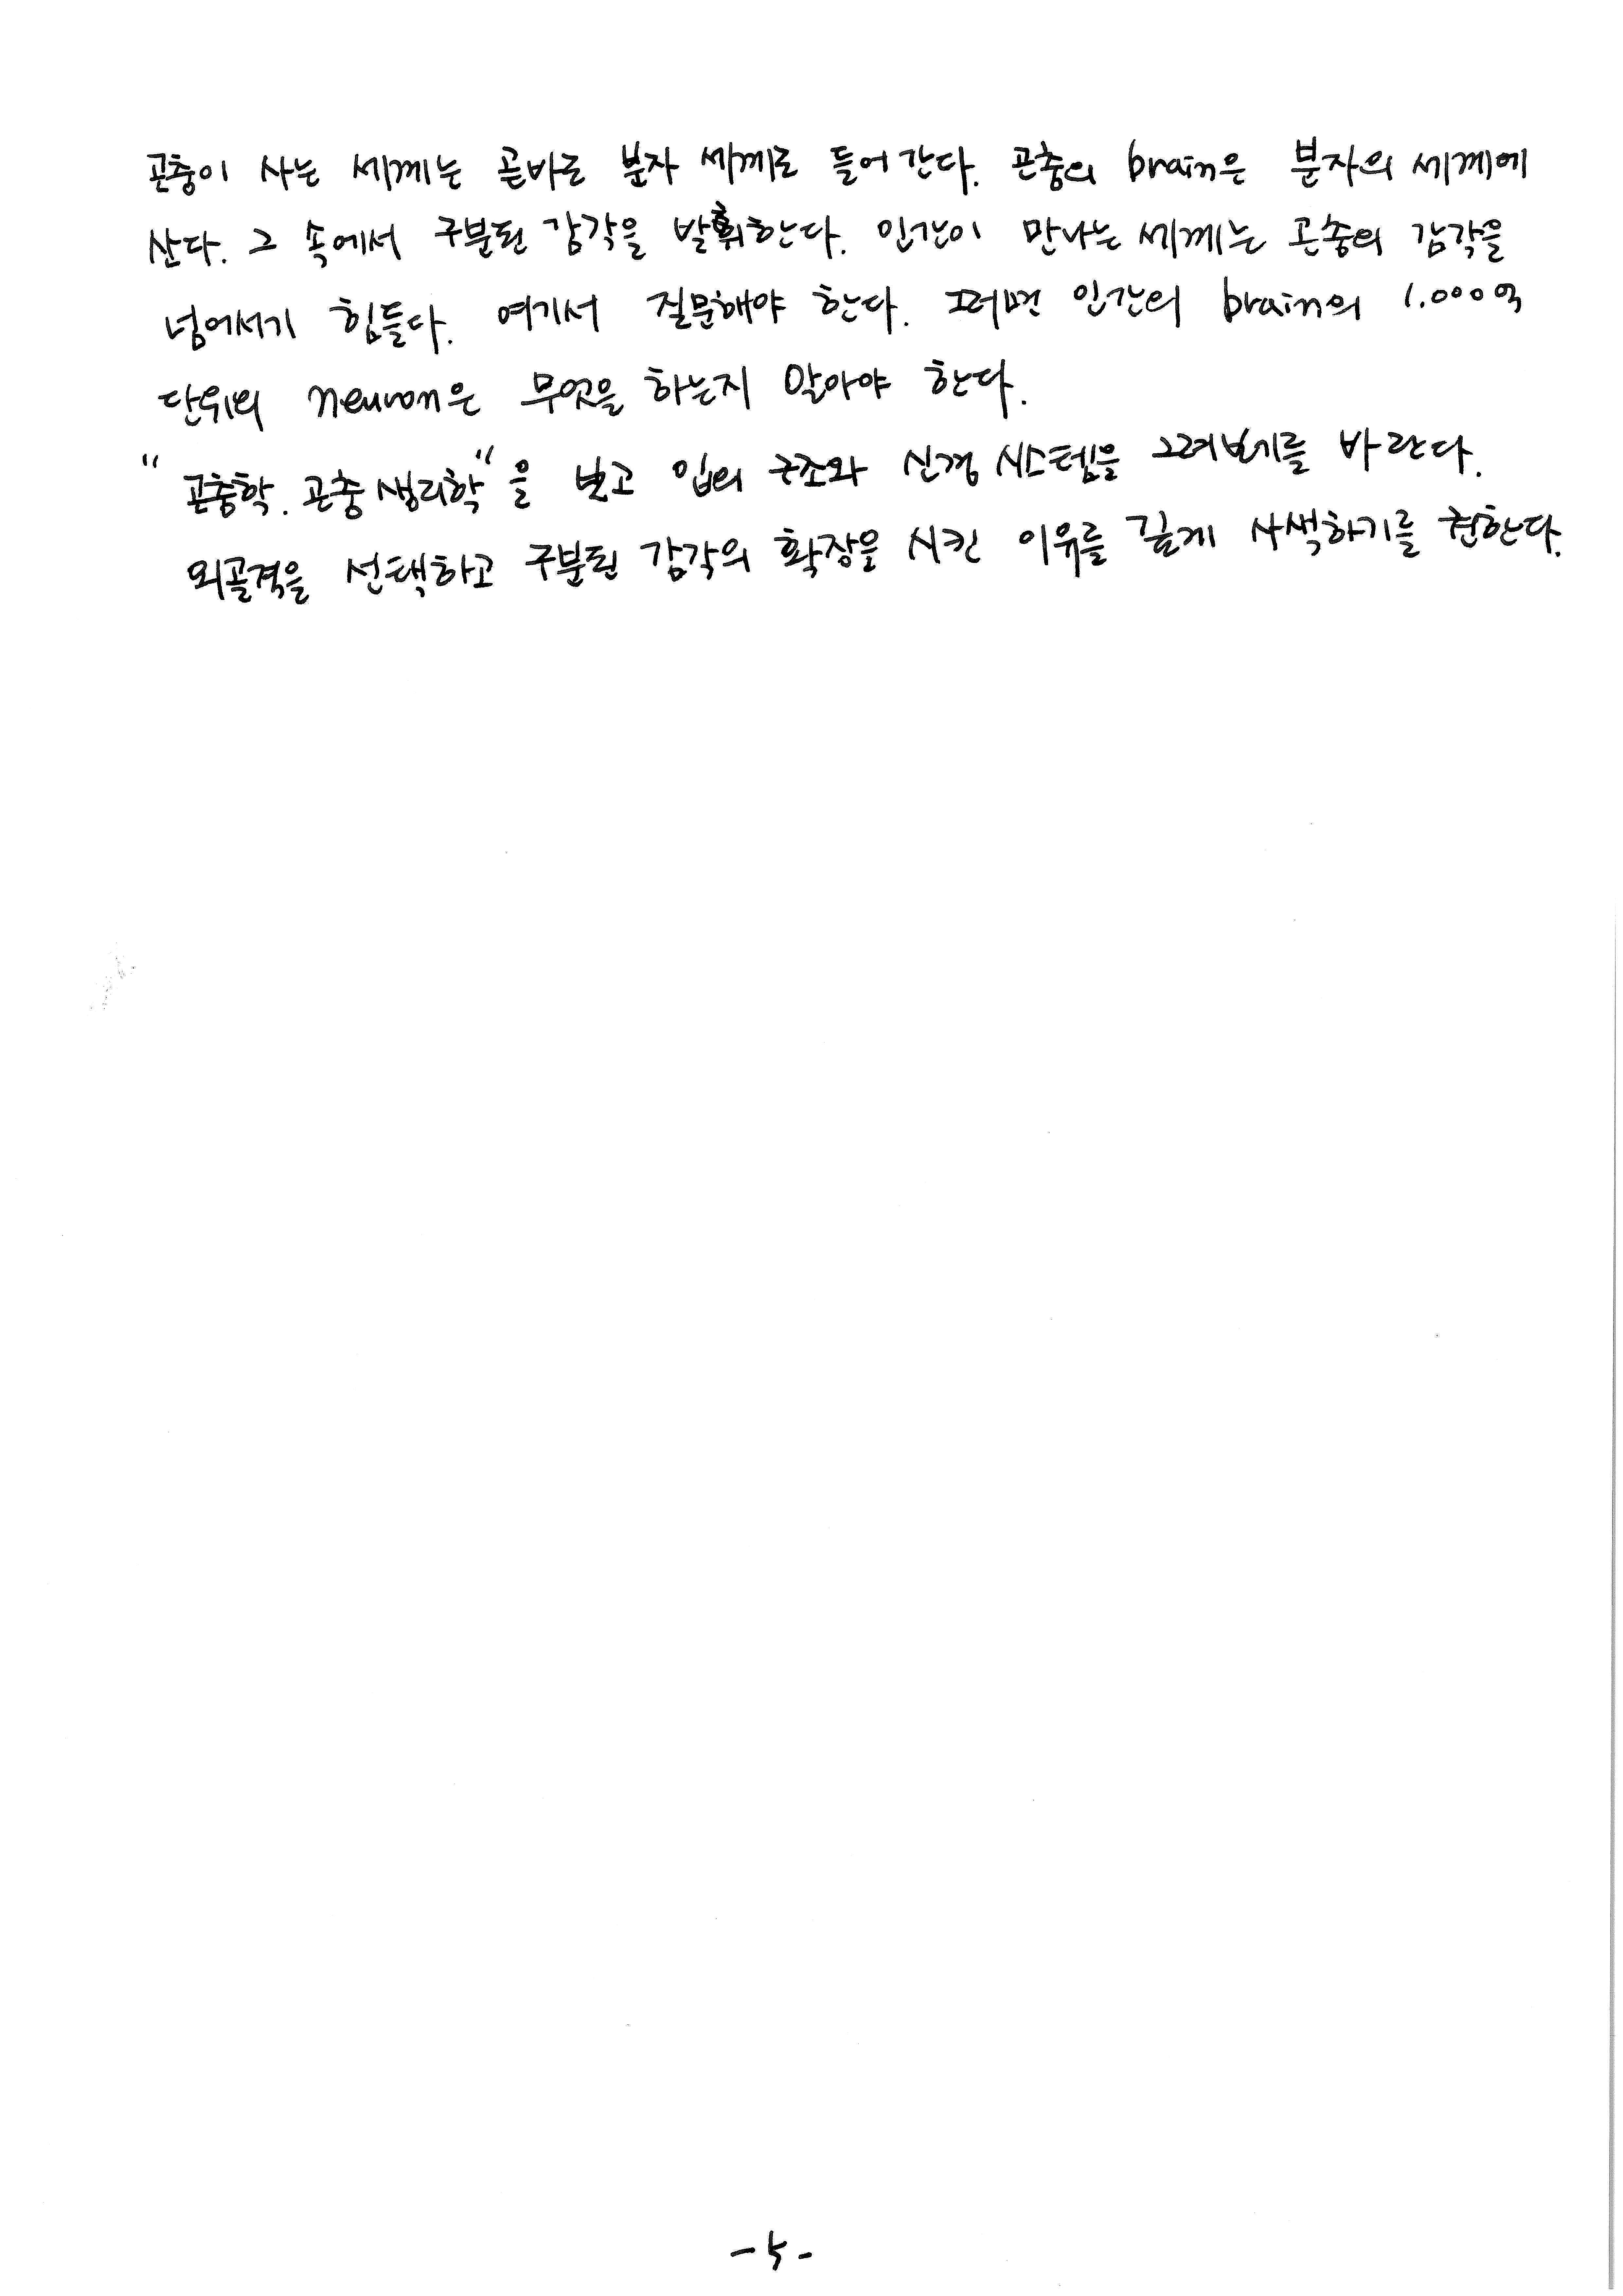 곤충이 사는 세계는 곧바로 분자 세계로 들어간다. 곤충의 brain은 분자의 세계에
산다. 그 속에서 구분된 감각을 발휘한다. 인간이 만나는 세계는 곤충의 감각을
넘어서기 힘들다. 여기서 질문해야 한다. 그러면 인간의 brain의 1.000억
단위의 neuron은 무엇을 하는지 알아야 한다.
"곤충학. 곤충 생리학"을 보고 입의 구조와 신경 시스템을 그려보기를 바란다.
외골격을 선택하고 구분된 감각의 확장을 시킨 이유를 깊게 사색하기를 권한다.
-5-